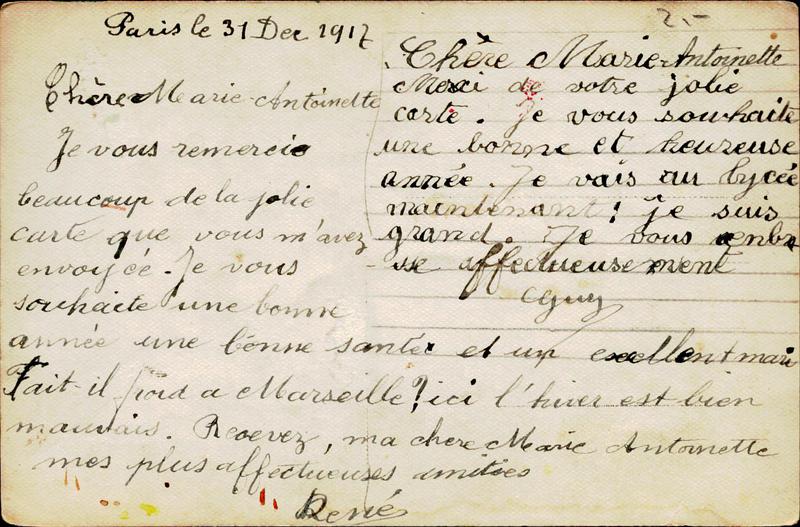 2.-
Paris le 31 Dec 1917
Chère Marie-Antoinette
Je vous remercie
beaucoup de la jolie
carte que vous m'avez
envoyée. Je vous
souhaite une bonne
année une bonne santé et un excellent mari
Fait-il froid a Marseille? ici l'hiver est bien
mauvais. Recevez, ma chere Marie Antoinette
mes plus affectueuses amitiés
René
Chère Marie-Antoinette
Merci de votre jolie
carte. Je vous souhaite
une bonne et heureuse
année. Je vais au lycée
maintenant! je suis
grand. Je vous embra
sse affectueusement
Guy